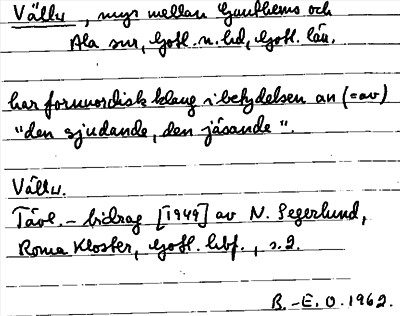 Vällu, myr mellan Ganthems och
Ala snr, Gotl. n. hd, Gotl. län.
har fornnordisk klang i betydelsen an (=av)
"den sjudande, den jäsande".
Vällu.
Tävl.-bidrag [1949] av N. Segerlund,
Roma Kloster, Gotl. hbf., s. 2.
B.-E. O. 1962.